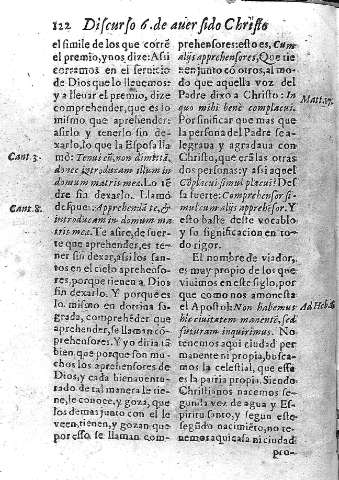 122 Discurso 6. de auer sido Christo
el simile de los que corrẽ
el premio, y nos dize: Asi
corramos en el seruicio
de Dios que lo lleuemos:
y a lleuar el premio, dize
comprehender, que es lo
mismo que aprehender:
asirlo y tenerlo sin de-
xarlo, lo que la Esposa lla
mò: Tenui eũ, non dimittã,
donec introducam illum in
domum matris meæ. Lo tẽ
drè sin dexarlo. Llamò
despues: Apprehendã te, &
introducam in domum ma
tris meæ. Te asire, de suer-
te que aprehender, es te-
ner sin dexar, asi los san-
tos en el cielo aprehenso-
res, porque tienen a Dios
sin dexarlo. Y porque es
lo mismo en dotrina sa-
grada, comprehẽder que
aprehender, se llaman cõ-
prehensores. Y yo diria tã
bien que porque son mu-
chos los aprehensores de
Dios, y cada bienauentu-
rado de tal manera le tie-
ne, le conoce, y goza, que
los demas junto con el le
veen, tienen, y gozan que
por esso se llaman com-
Cant. 3.
Cant. 8.
prehensores: esto es, Cum
alijs apprehensores, Que tie
nen junto cõ otros, al mo-
do que aquella voz del
Padre dixo a Christo: In
quo mihi benè complacui.
Por sinificar que mas que
la persona del Padre se a-
legraua y agradaua con
Christo, que erã las otras
dos personas: y asi aquel
Cõplacui: simul placui: De
sa suerte: Comprehensor si-
mul cum alijs apprehẽsor. Y
esto baste deste vocablo
y su significacion en to-
do rigor.
El nombre de viador,
es muy propio de los que
viuimos en este siglo, de
que como nos amonesta
el Apostol: Non habemus
hic ciuitatem manentẽ, sed
futuram inquirimus. No
tenemos aqui ciudad per
manente ni propia, busca-
mos la celestial, que essa
es la patria propia. Siendo
Christianos nacemos se-
gunda vez de agua y Es-
piritu santo, y segun este
segũdo nacimiẽto, no te-
nemos aqui casa ni ciudad
pro-
Matt. 17.
Ad Heb. 13.